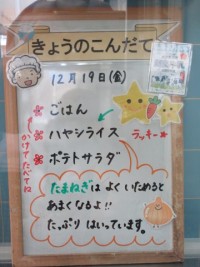 きょうのこんだて
12月19日(金)
ごはん
ハヤシライス
ラッキー★
かけてたべてね
ポテトサラダ
たまねぎは よく いためると
あまくなるよ!!
たっぷり はいっています。